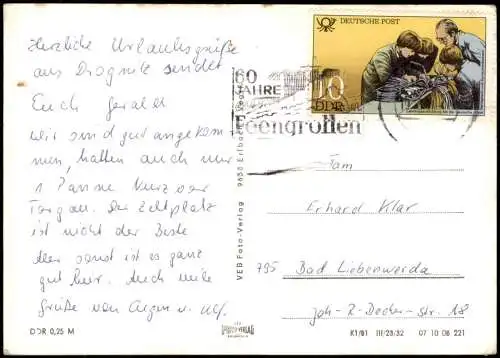 Herzliche Urlaubsgrüße
aus Drognitz sendet
Euch Gerald
wir sind gut angekom
men, hatten auch nur
1 Panne kurz vor
Torgau. Der Zeltplatz
ist nicht der Beste
aber sonst ist es ganz
gut hier. Auch viele
Grüße von
DDR 0,25 M
VEB Foto-Verlag 9650 Erlbach
DEUTSCHE POST
10
DDR
60
JAHRE
Feengrotten
Fam
Erhard Klar
795 Bad Liebenwerda
Joh.-R.-Becher-Str. 18
K1/81 III/28/32 07 10 08 221